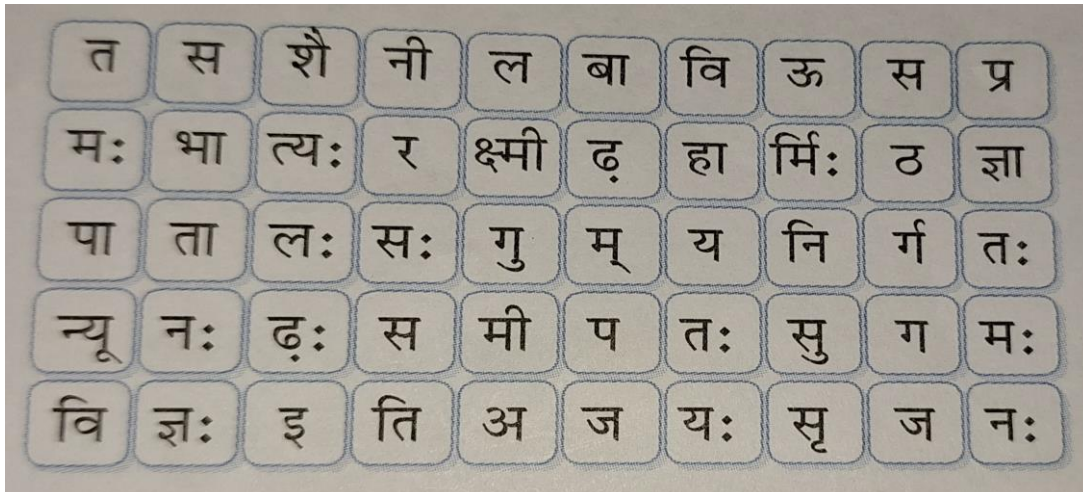 त स शै नी ल बा वि ऊ स प्र
मः भा त्यः र क्ष्मी ढ़ हा र्मिः ठ ज्ञा
पा ता लः सः गु म् य नि र्ग तः
न्यू नः ढ़ः स मी प तः सु ग मः
वि ज्ञः इ ति अ ज यः सृ ज नः